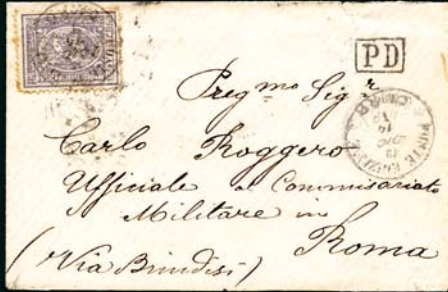 PD
Preg.mo Sig.r
Carlo Roggero
Ufficiale di Commisariato
Militare in
Roma
(Via Brindisi)
POSTE EGIZIANE